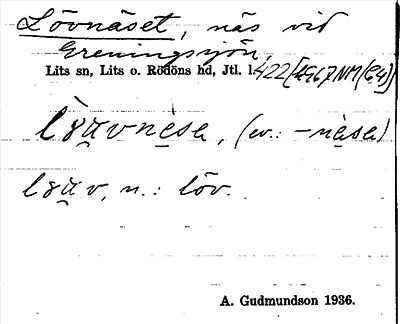 Lövnäset, näs vid
Greningsjön,
Lits sn, Lits o. Rödöns hd, Jtl. l. 422 [4567 NM (C4)]
lꞷ̀u̯vnèsa, (ev.: -nèsa)
lꞷu̯v, n.: löv.
A. Gudmundson 1936.